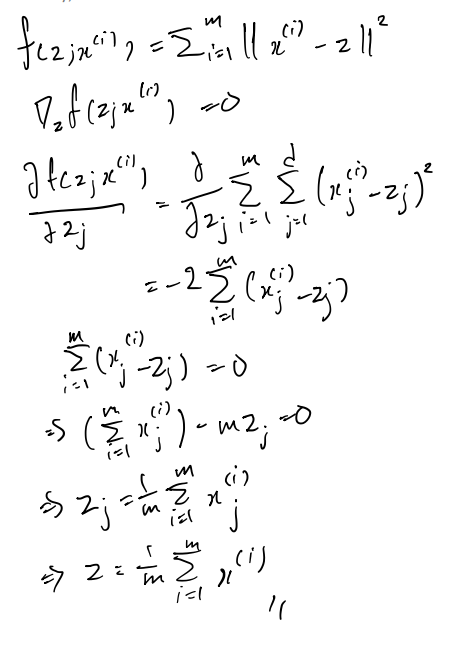 f(z; x^{(i)}) = \sum_{i=1}^{m} \| x^{(i)} - z \|^2
\nabla_z f(z; x^{(i)}) = 0
\frac{\partial f(z; x^{(i)})}{\partial z_j} = \frac{\partial}{\partial z_j} \sum_{i=1}^{m} \sum_{j=1}^{d} (x_j^{(i)} - z_j)^2
= -2 \sum_{i=1}^{m} (x_j^{(i)} - z_j)
\sum_{i=1}^{m} (x_j^{(i)} - z_j) = 0
\Rightarrow (\sum_{i=1}^{m} x_j^{(i)}) - m z_j = 0
\Rightarrow z_j = \frac{1}{m} \sum_{i=1}^{m} x_j^{(i)}
\Rightarrow z = \frac{1}{m} \sum_{i=1}^{m} x^{(i)} //